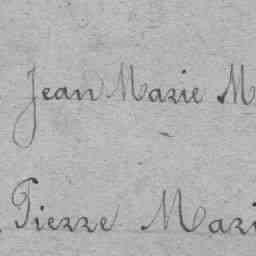 Jean Marie M
Pierre Mari